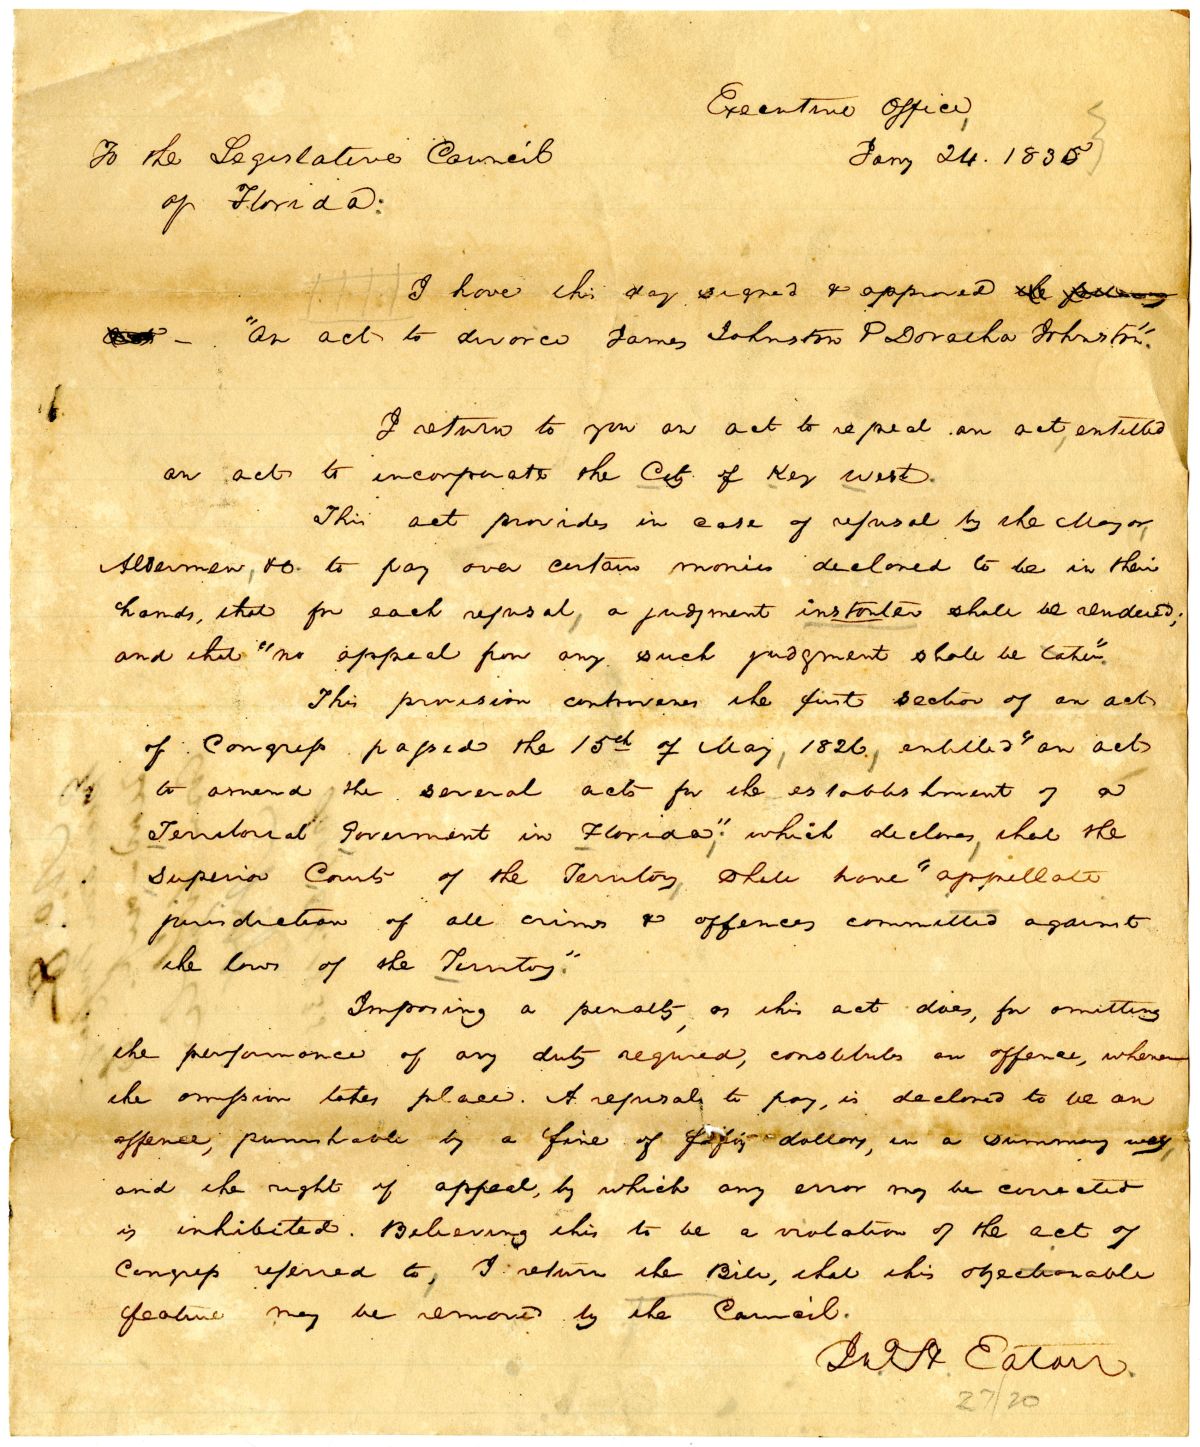 Executive Office,
Jany 24. 1835
To the Legislative Council
of Florida:
I have this day signed & approved the
— "An act to divorce James Johnston & Doratha Johnston".
I return to you an act to repeal an act, entitled
an act to incorporate the City of Key West.
This act provides in case of refusal by the Mayor,
Aldermen, &c. to pay over certain monies declared to be in their
hands, that for each refusal, a judgment instanter shall be rendered;
and that "no appeal from any such judgment shall be taken".
This provision controvenes the first section of an act
of Congress passed the 15th of May, 1826, entitled "an act
to amend the several acts for the establishment of a
Territorial Goverment in Florida"; which declares, that the
Superior Courts of the Territory shall have "appellate
jurisdiction of all crimes & offences committed against
the laws of the Territory."
Imposing a penalty, as this act does, for omitting
the performance of any duty required, constitutes an offence, whenever
the omission takes place. A refusal to pay, is declared to be an
offence, punishable by a fine of fifty dollars, in a summary way,
and the right of appeal, by which any error may be corrected
is inhibited. Believing this to be a violation of the act of
Congress referred to, I return the Bill, that this objectionable
feature may be removed by the Council.
Jn. H. Eaton.
27/20